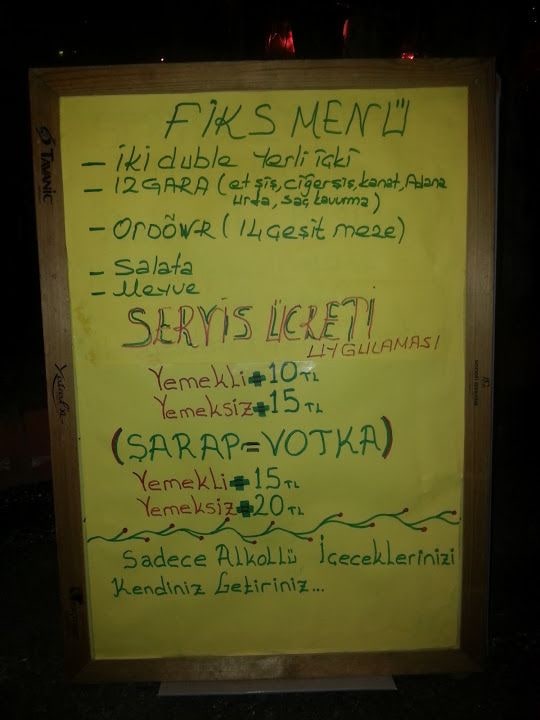 FİKS MENÜ
— İki duble Yerli içki
— IZGARA (et şiş, ciğerşiş, kanat, Adana
Urfa, saç kavurma)
— ORDÖWR (14 çeşit meze)
— Salata
— Meyve
SERVİS ÜCRETİ
UYGULAMASI
Yemekli + 10 TL
Yemeksiz + 15 TL
(ŞARAP = VOTKA)
Yemekli + 15 TL
Yemeksiz + 20 TL
Sadece Alkollü İçeceklerinizi
Kendiniz Getiriniz...
TAVANIC